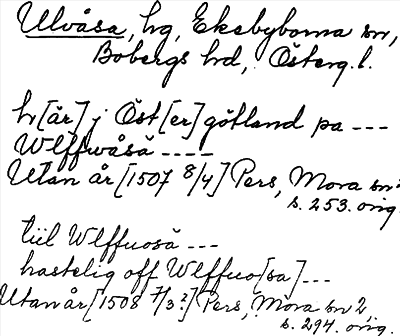 Ulvåsa, hg, Ekebyborna sn,
Bobergs hd, Österg. l.
h[är] j Öst[er]götland pa ---
Wlffwåsä ----
Utan år [1507 8/4] Pers, Mora sn 
s. 253. orig.
tiil Wlffuosä ---
hastelig off Wlffuo[sa] ---
Utan år [1508 7/3 ?] Pers, Mora sn 2
s. 294. orig.